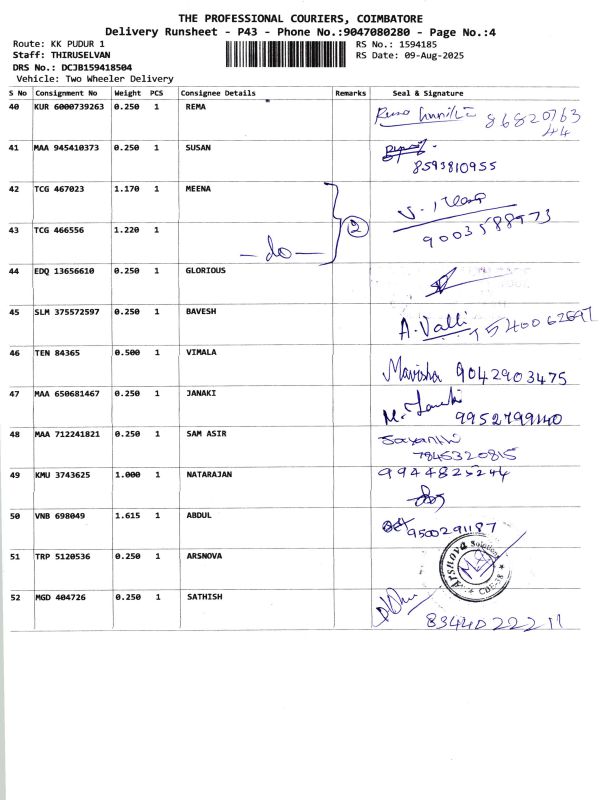 THE PROFESSIONAL COURIERS, COIMBATORE
Delivery Runsheet - P43 - Phone No.:9047080280 - Page No.:4
Route: KK PUDUR 1
RS No.: 1594185
Staff: THIRUSELVAN
RS Date: 09-Aug-2025
DRS No.: DCJB159418504
Vehicle: Two Wheeler Delivery
S No Consignment No Weight PCS Consignee Details Remarks Seal & Signature
40 KUR 6000739263 0.250 1 REMA 86820763
44
41 MAA 945410373 0.250 1 SUSAN
8593810955
42 TCG 467023 1.170 1 MEENA
2
43 TCG 466556 1.220 1 9003588973
— do —
44 EDQ 13656610 0.250 1 GLORIOUS
45 SLM 375572597 0.250 1 BAVESH
A. Valli
46 TEN 84365 0.500 1 VIMALA
Mavisha 9042903475
47 MAA 650681467 0.250 1 JANAKI
M. Janaki
9952799140
48 MAA 712241821 0.250 1 SAM ASIR
7845320815
49 KMU 3743625 1.000 1 NATARAJAN 9944825244
50 VNB 698049 1.615 1 ABDUL
9500291187
51 TRP 5120536 0.250 1 ARSNOVA
Arsnova Solutions
52 MGD 404726 0.250 1 SATHISH
8344022211